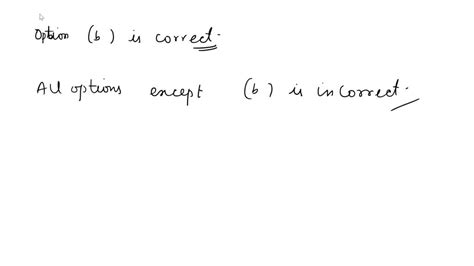 Option (b) is correct.
All options except (b) is incorrect.